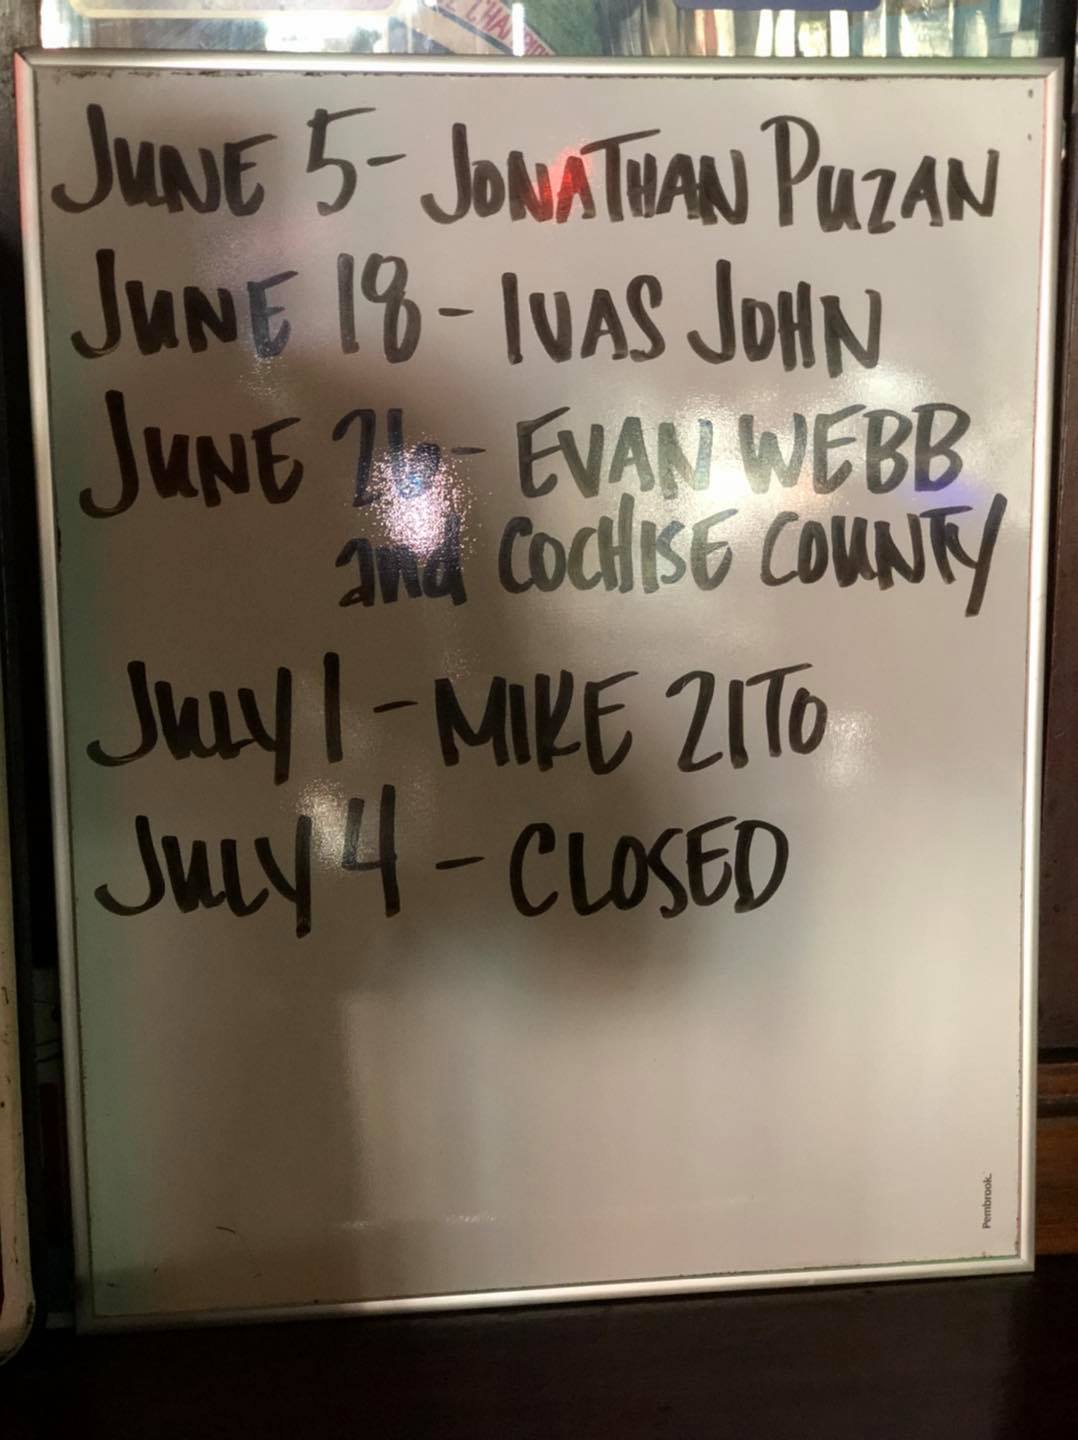 JUNE 5- JONATHAN PUZAN
JUNE 18- IVAS JOHN
JUNE 26- EVAN WEBB
and COCHISE COUNTY
JULY 1 - MIKE ZITO
JULY 4 - CLOSED
Pembrook.